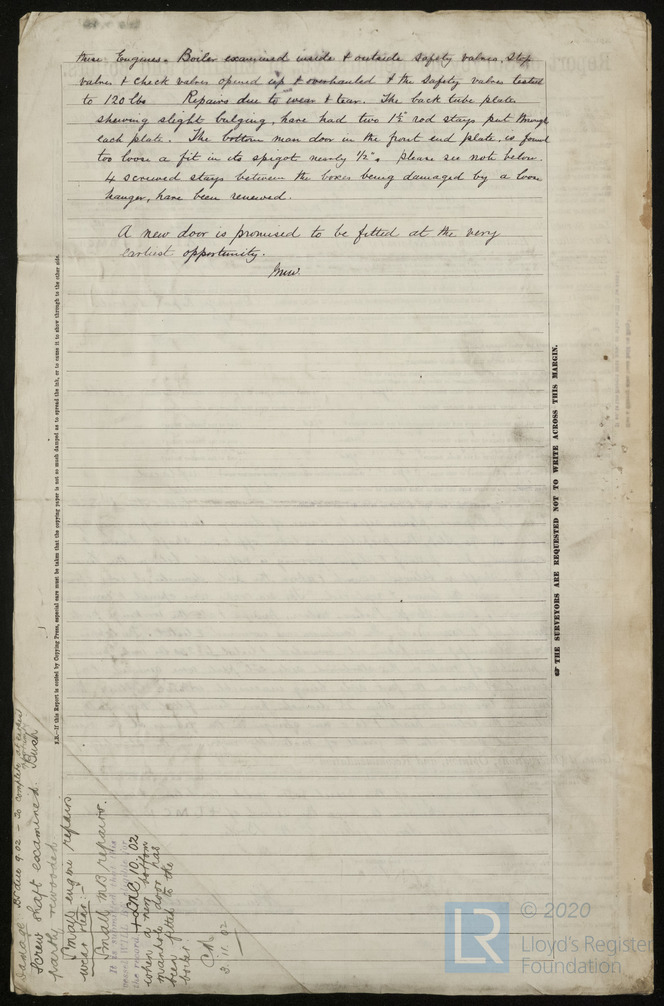 these Engines. Boiler examined inside & outside safety valves, stop
valves & check valves opened up & overhauled & the safety valves tested
to 120 lbs Repairs due to wear & tear. The back tube plate
shewing slight bulging, have had two 1½" rod stays put through
each plate. The bottom man door in the front end plate, is found
too loose a fit in its spigot nearly ½". Please see note below.
4 screwed stays between the boxes being damaged by a loose
hanger, have been renewed.
A new door is promised to be fitted at the very
earliest opportunity.
THE SURVEYORS ARE REQUESTED NOT TO WRITE ACROSS THIS MARGIN.
N.B.—If this Report is copied by Copying Press, especial care must be taken that the copying paper is not so much damped as to spread the ink, or to cause it to show through to the other side.
Damage BS due 9.02 - To complete
Screw shaft examined. Bush
partly rewooded
Small engine repairs
wear & tear:-
Small MB repairs.
It is submitted that this
the record + LMC 10,02
when a new bottom
manhole door has
been fitted to the
boiler.
3.11.02
© 2020
LR
Lloyd's Register
Foundation